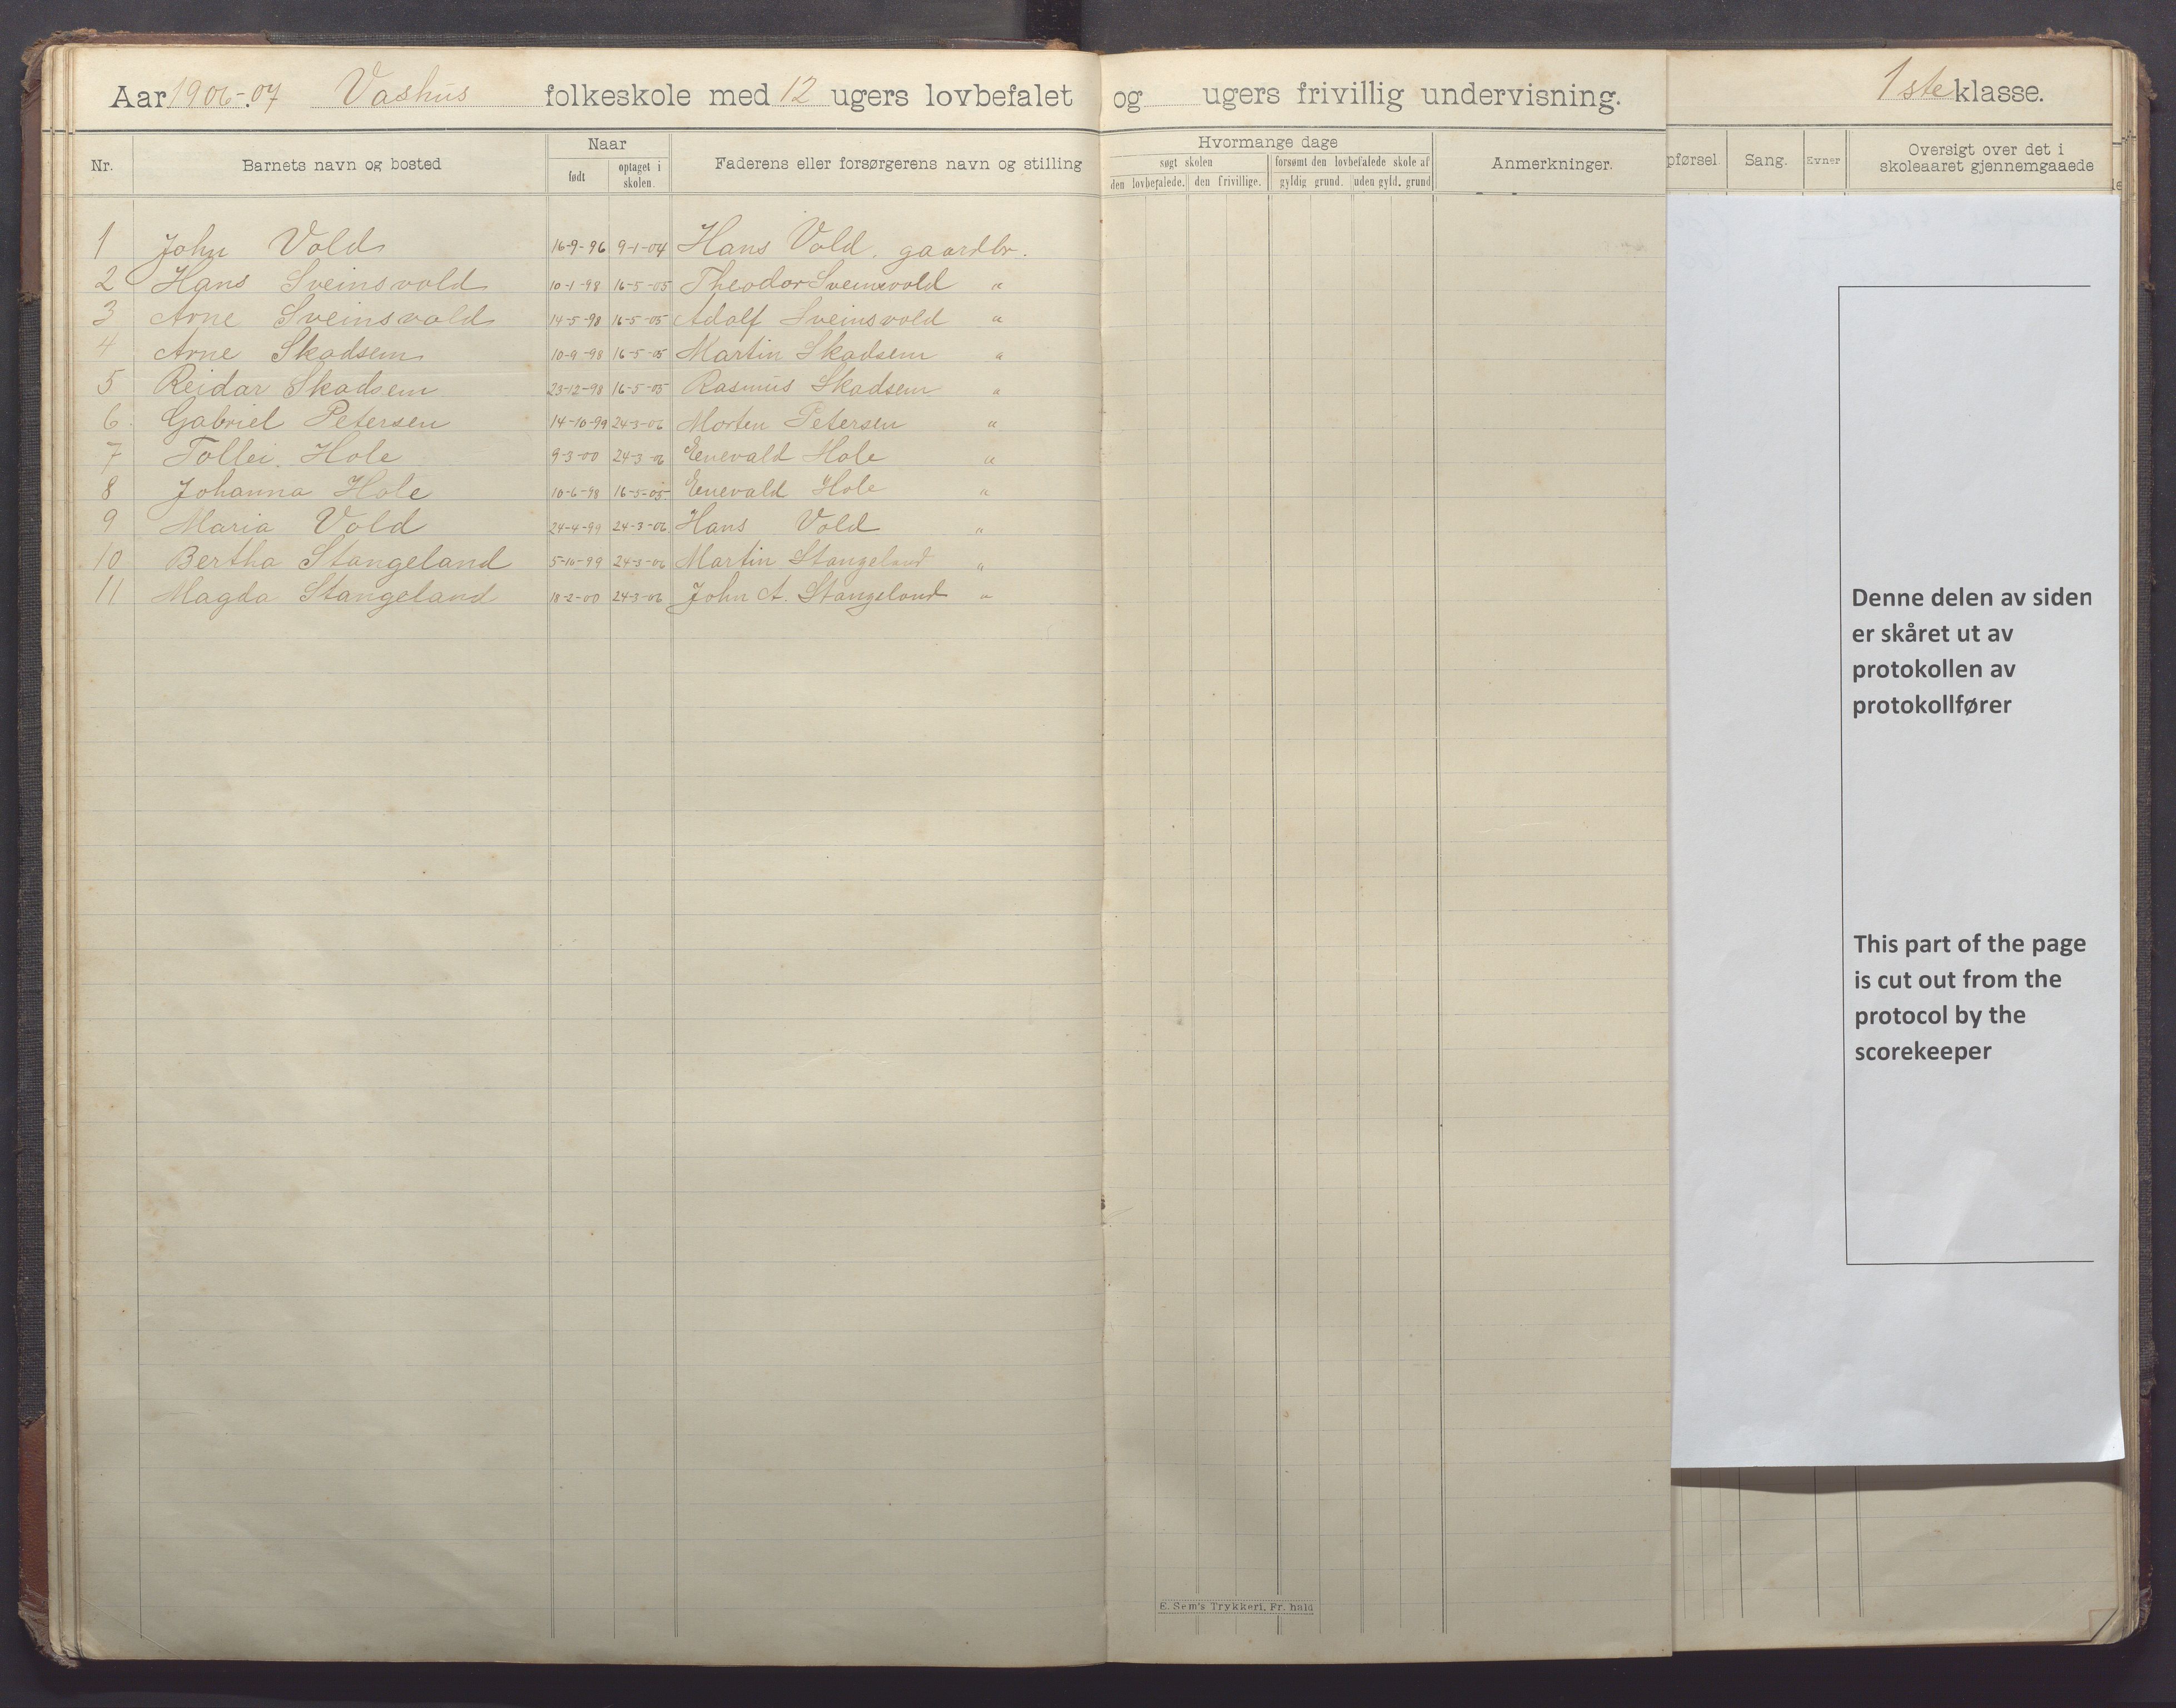 Aar 1906-07 Vashus folkeskole med 12 ugers lovbefalet og ugers frivillig undervisning. 1ste klasse.
Nr. Barnets navn og bosted Naar født optaget i skolen. Faderens eller forsørgerens navn og stilling Hvormange dage søgt skolen den lovbefalede. den frivillige. forsømt den lovbefalede skole af gyldig grund. uden gyld. grund Anmerkninger. pførsel Sang. Evner Oversigt over det i skoleaaret gjennemgaaede
1 John Vold 16-9-96 9-1-04 Hans Vold. gaardbr.
2 Hans Sveinsvold 10-1-98 16-5-05 Theodor Sveinsvold "
3 Arne Sveinsvold 14-5-98 16-5-05 Adolf Sveinsvold "
4 Arne Skadsem 10-9-98 16-5-05 Martin Skadsem "
5 Reidar Skadsem 23-12-98 16-5-05 Rasmus Skadsem "
6 Gabriel Petersen 14-10-99 24-3-06 Morten Petersen "
7 Tollei Hole 9-3-00 24-3-06 Enevald Hole "
8 Johanna Hole 10-6-98 16-5-05 Enevald Hole "
9 Maria Vold 24-4-99 24-3-06 Hans Vold "
10 Bertha Stangeland 5-10-99 24-3-06 Martin Stangeland "
11 Magda Stangeland 18-2-00 24-3-06 John A. Stangeland "
Denne delen av siden
er skåret ut av
protokollen av
protokollfører
This part of the page
is cut out from the
protocol by the
scorekeeper
E. Sem's Trykkeri, Fr. hald